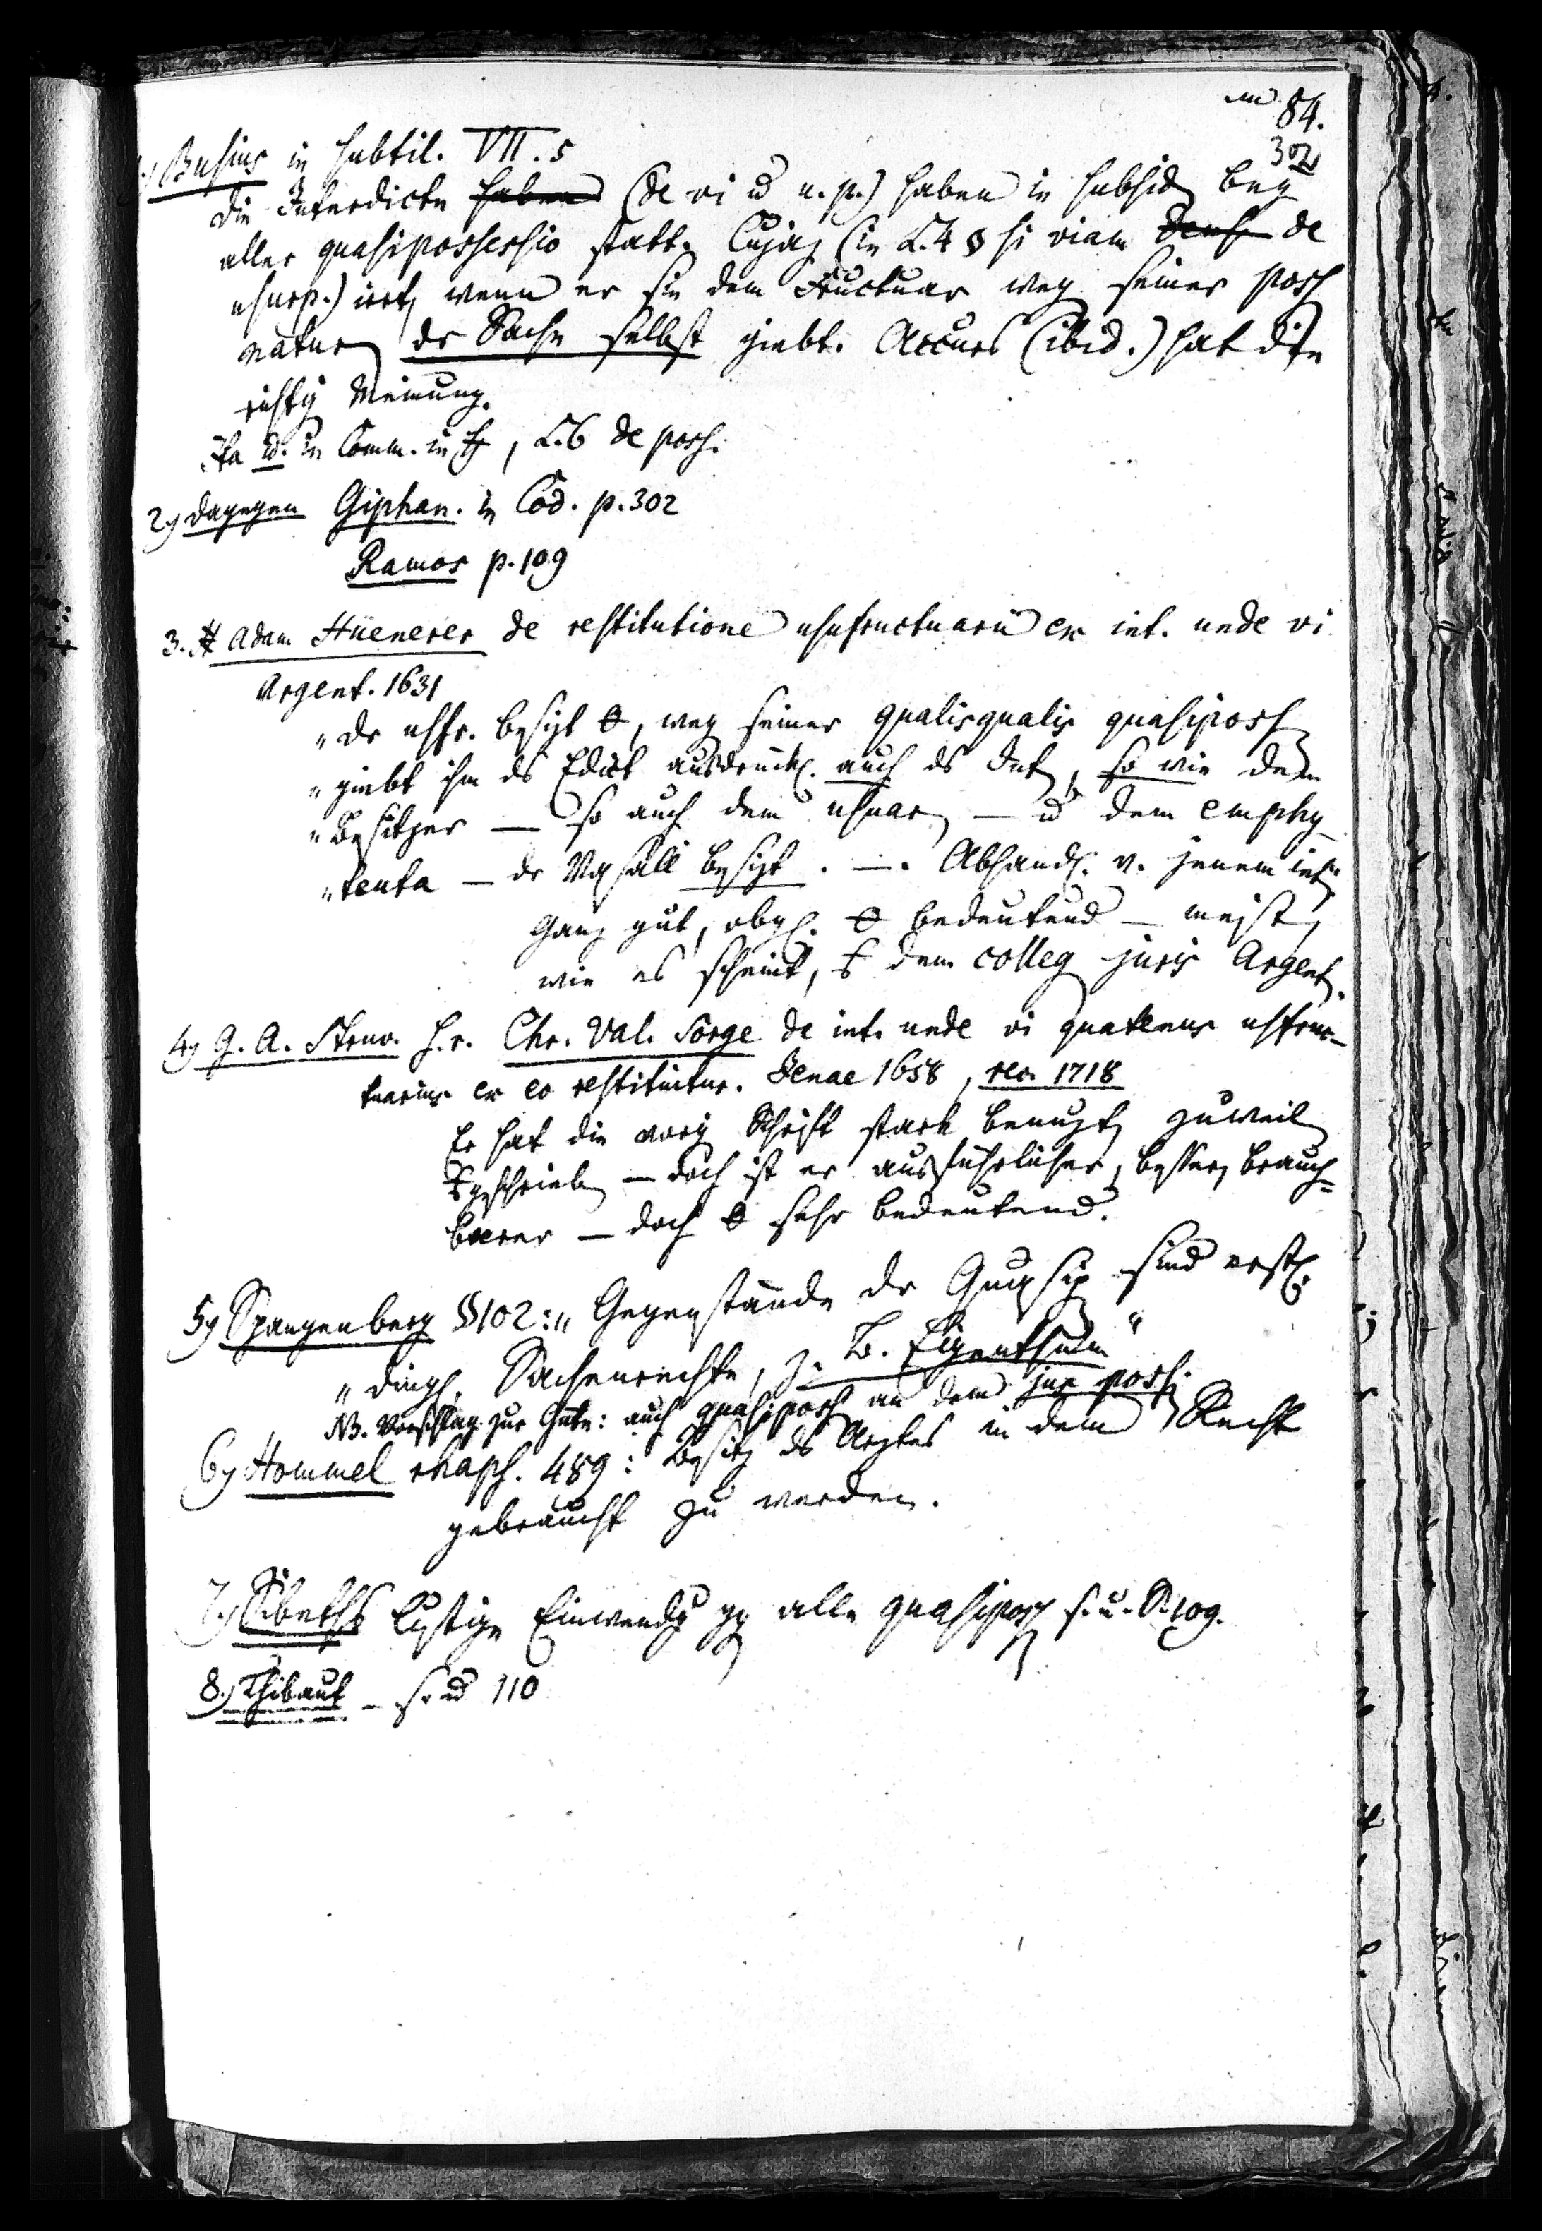 84.
302
1.) Busius in subtil. VII. 5
die Interdicte haben (de vi u u. p.) haben in subsid. bey
aller quasipossessio statt. Cujaz (in L. 4 § si viam de
usurp.) irrt, wenn er sie dem Fructuar weg. seiner poss.
natur. der Sache selbst giebt. Accurs (ibid.) hat die
richtig Meinung.
Ita id. in Comm. in ff, L. 6 de poss.
2.) dagegen Giphan. in Cod. p. 302
Ramos p. 109
3. Adam Hüenerer de restitutione usufructuarii ex int. unde vi
Argent. 1631
" der usfr. besizt, weg seiner qualisqualis quasiposs
" giebt ihm ds Edict ausdrückl. auch ds Int, so wie dem
" Besitzer — so auch dem usuar — u dem emphy-
" teuta — der Vasall besizt. —. Abhandl. v. jenem int
Ganz gut, obgl. bedeutend — meist,
wie es scheint, dem colleg juris Argent.
4) G. A. Struv. h. r. Chr. Val. Sorge de int. unde vi quatenus usfruc-
tuarius ex eo restituitur. Jenae 1658, rec. 1718
Er hat die vorig Schrift stark benuzt, zuweil
geschrieb — doch ist er ausführlicher, besser, brauch-
barer — doch sehr bedeutend.
5) Spangenberg §102: " Gegenstände der Quasip sind erstl.
" dingl. Sachenrechte, z. B. Eigenthum "
NB. Vorschlag zur Güte: auch quasiposs an dem jus poss.
6) Hommel rhaps. 489: Besitz ds Arztes in dem Recht
gebraucht zu werden.
7.) Sibeths lustige Einwendg gg alle quasiposs s. u. S. 109.
8.) Thibaut — s. u 110